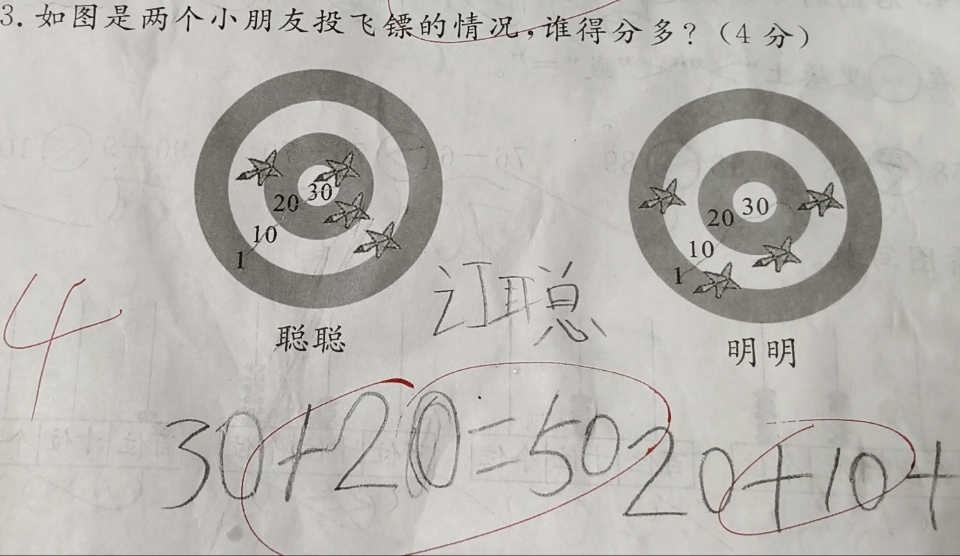 3. 如图是两个小朋友投飞镖的情况,谁得分多?(4分)
30
20
10
1
30
20
10
1
4
订聪
聪聪
明明
30+20=50
20+10+